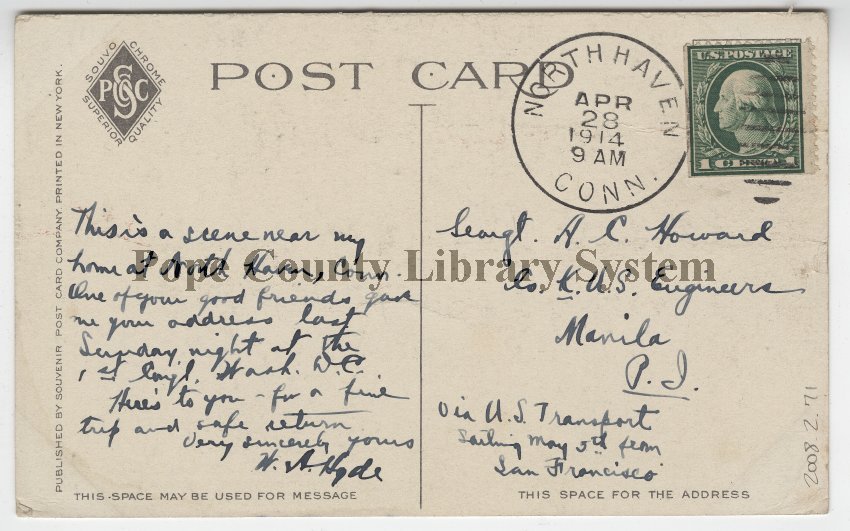 SOUVO CHROME
SUPERIOR QUALITY
PSCC
POST CARD
NORTH HAVEN
APR
28
1914
9 AM
CONN.
U.S. POSTAGE
1 CENT 1
PUBLISHED BY SOUVENIR POST CARD COMPANY. PRINTED IN NEW YORK.
This is a scene near my
home at North Haven, Conn.
One of your good friends gave
me your address last
Sunday night at the
1st Congl. Wash. D.C.
Here's to you - for a fine
trip and safe return
Very sincerely yours
W. A. Hyde
Seargt. A. C. Howard
Co. K. U.S. Engineers
Manila
P. I.
Via U.S. Transport
Sailing May 5th from
San Francisco
Pope County Library System
2008.2.71
THIS SPACE MAY BE USED FOR MESSAGE
THIS SPACE FOR THE ADDRESS